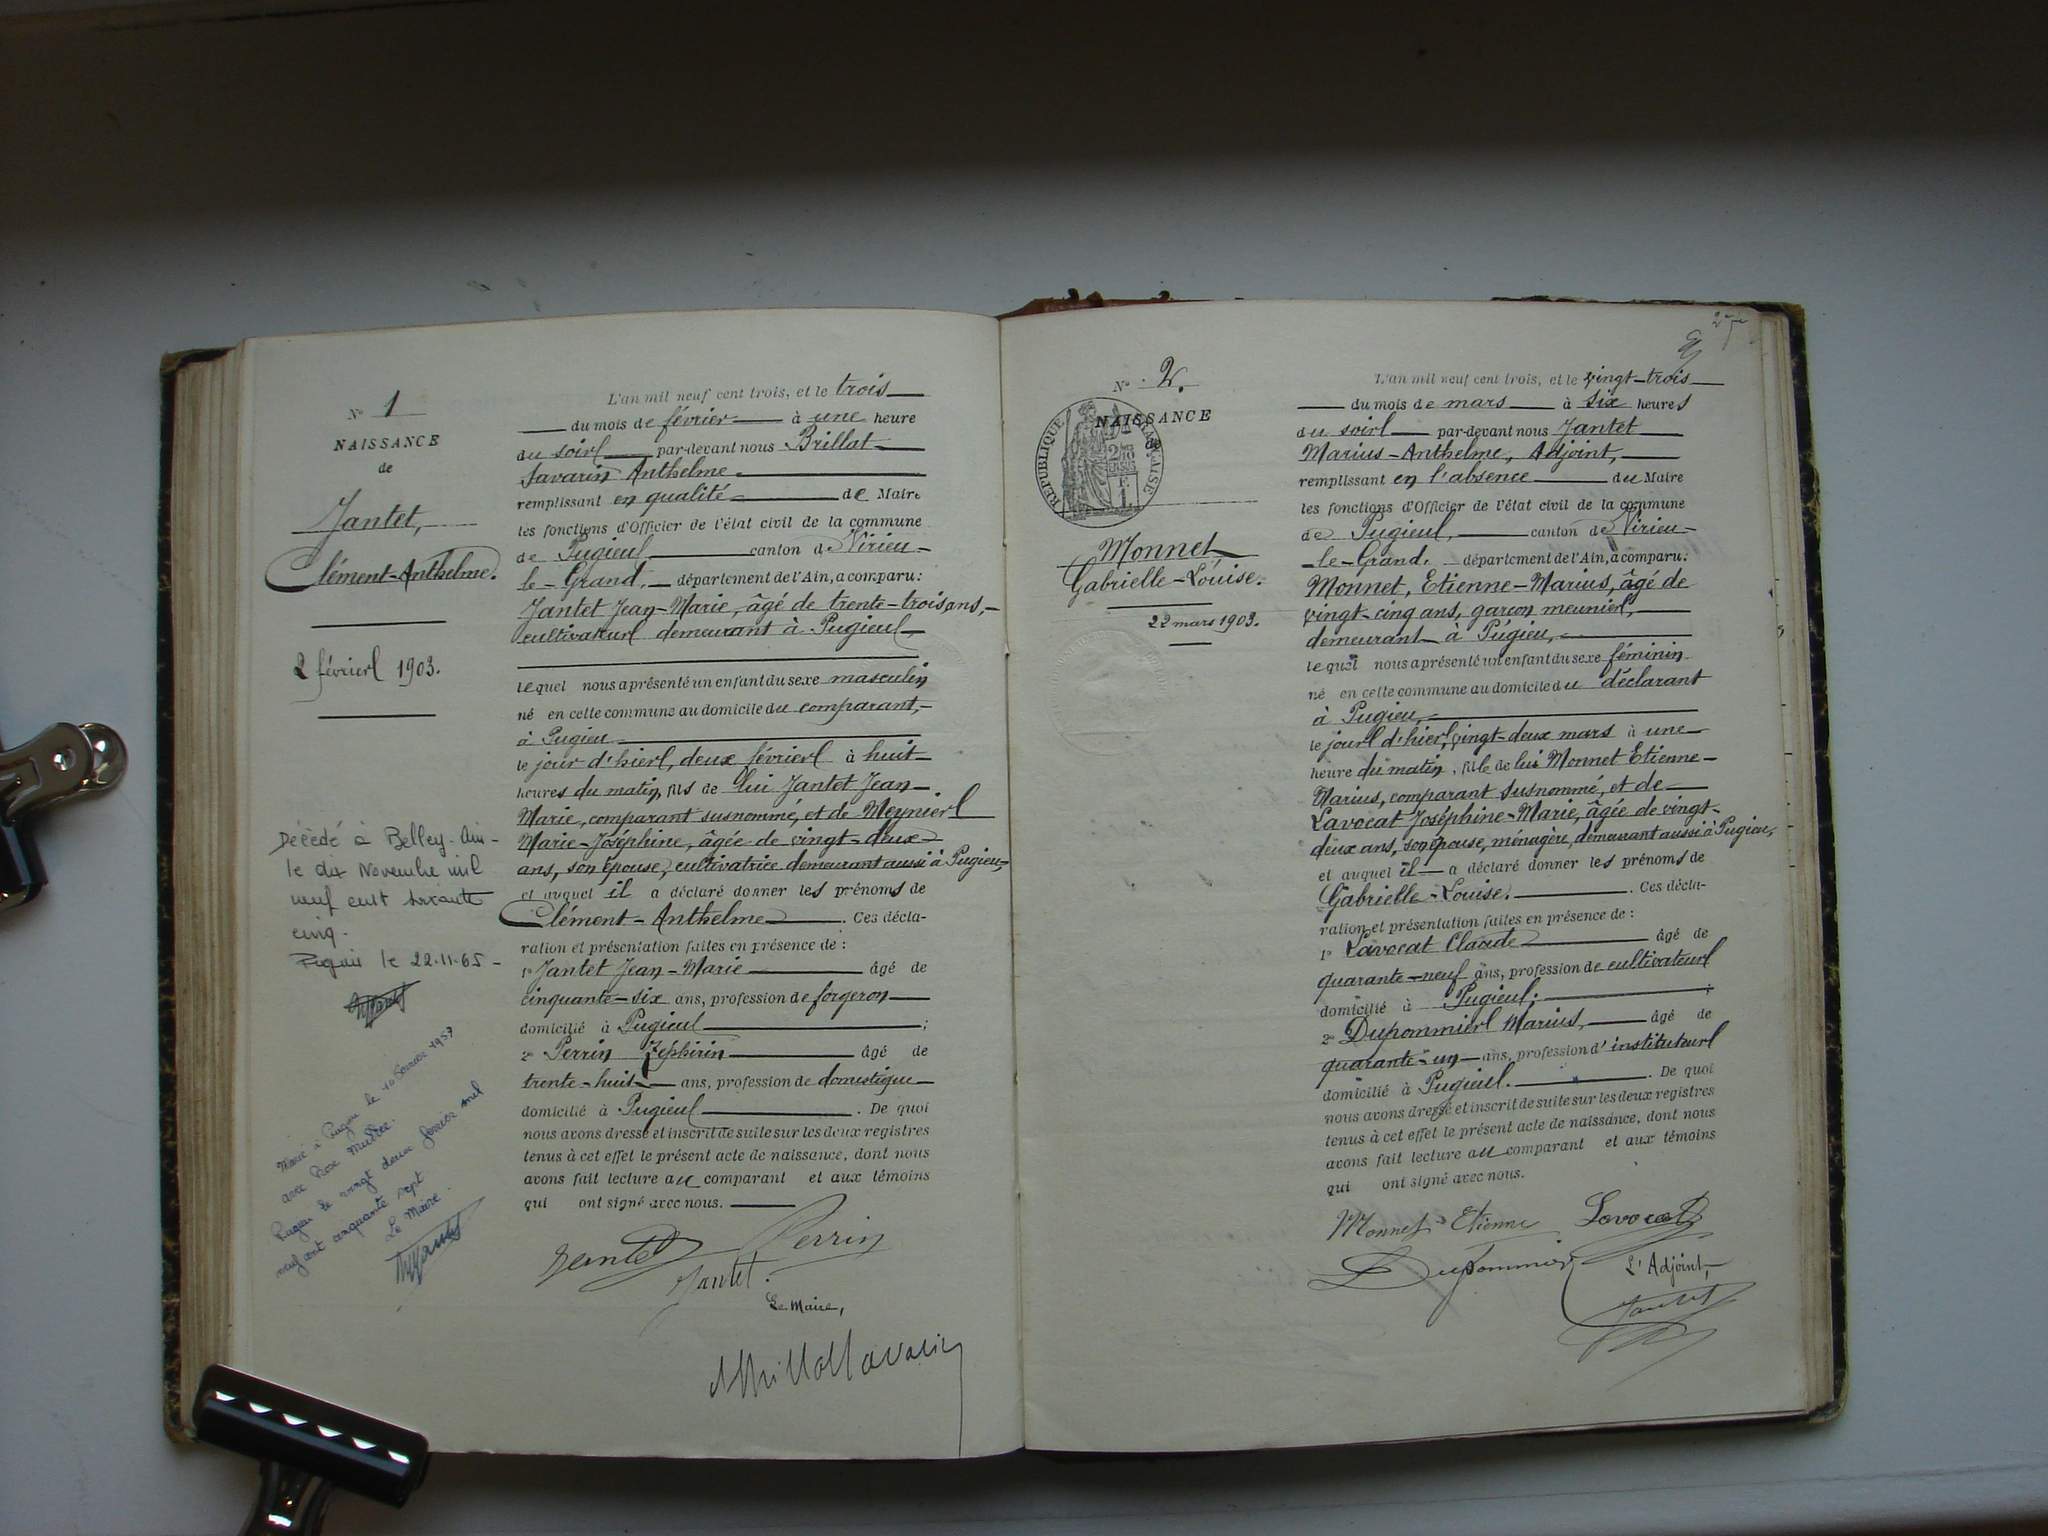 N° 1
NAISSANCE
de
Jantet,
Clément-Anthelme.
2 février 1903.
Décédé à Belley-Ain-
le dix Novembre mil
neuf cent soixante
cinq.
Pugieu le 22.11.65-
Marié à Pugieu le 16 février 1957
avec Rose
Pugieu le vingt deux février mil
neuf cent cinquante sept
Le Maire.
L'an mil neuf cent trois, et le trois
du mois de février à une heure
du soir par-devant nous Brillat
Savarin Anthelme
remplissant en qualité de Maire
les fonctions d'Officier de l'état civil de la commune
de Pugieu canton de Virieu-
le-Grand, département de l'Ain, a comparu:
Jantet Jean-Marie, âgé de trente-trois ans,
cultivateur demeurant à Pugieu
lequel nous a présenté un enfant du sexe masculin
né en cette commune au domicile du comparant,
à Pugieu
le jour d'hier, deux février à huit
heures du matin, fils de lui Jantet Jean-
Marie, comparant susnommé, et de Meynier
Marie-Joséphine, âgée de vingt-deux
ans, son épouse, cultivatrice demeurant aussi à Pugieu,
et auquel il a déclaré donner les prénoms de
Clément-Anthelme. Ces décla-
ration et présentation faites en présence de :
1° Jantet Jean-Marie âgé de
cinquante-six ans, profession de forgeron
domicilié à Pugieu ;
2° Perrin Zéphirin âgé de
trente-huit ans, profession de domestique
domicilié à Pugieu. De quoi
nous avons dressé et inscrit de suite sur les deux registres
tenus à cet effet le présent acte de naissance, dont nous
avons fait lecture au comparant et aux témoins
qui ont signé avec nous.
Jantet Perrin
Jantet.
Le Maire,
Brillat Savarin
N° 2.
NAISSANCE
de
RÉPUBLIQUE FRANÇAISE
Monnet
Gabrielle-Louise.
22 mars 1903.
L'an mil neuf cent trois, et le vingt-trois
du mois de mars à six heures
du soir par-devant nous Jantet
Marius-Anthelme, Adjoint,
remplissant en l'absence du Maire
les fonctions d'Officier de l'état civil de la commune
de Pugieu, canton de Virieu-
le-Grand, département de l'Ain, a comparu:
Monnet, Etienne-Marius, âgé de
vingt-cinq ans, garçon meunier,
demeurant à Pugieu,
lequel nous a présenté un enfant du sexe féminin
né en cette commune au domicile du déclarant
à Pugieu,
le jour d'hier, vingt-deux mars à une
heure du matin, fille de lui Monnet Etienne-
Marius, comparant susnommé, et de
Lavocat Joséphine-Marie, âgée de vingt-
deux ans, son épouse, ménagère, demeurant aussi à Pugieu,
et auquel il a déclaré donner les prénoms de
Gabrielle-Louise. Ces décla-
ration et présentation faites en présence de :
1° Lavocat Claude âgé de
quarante-neuf ans, profession de cultivateur
domicilié à Pugieu, ;
2° Dupommier Marius, âgé de
quarante-un ans, profession d'instituteur
domicilié à Pugieu. De quoi
nous avons dressé et inscrit de suite sur les deux registres
tenus à cet effet le présent acte de naissance, dont nous
avons fait lecture au comparant et aux témoins
qui ont signé avec nous.
Monnet Etienne Lavocat
Dupommier L'Adjoint,
Jantet